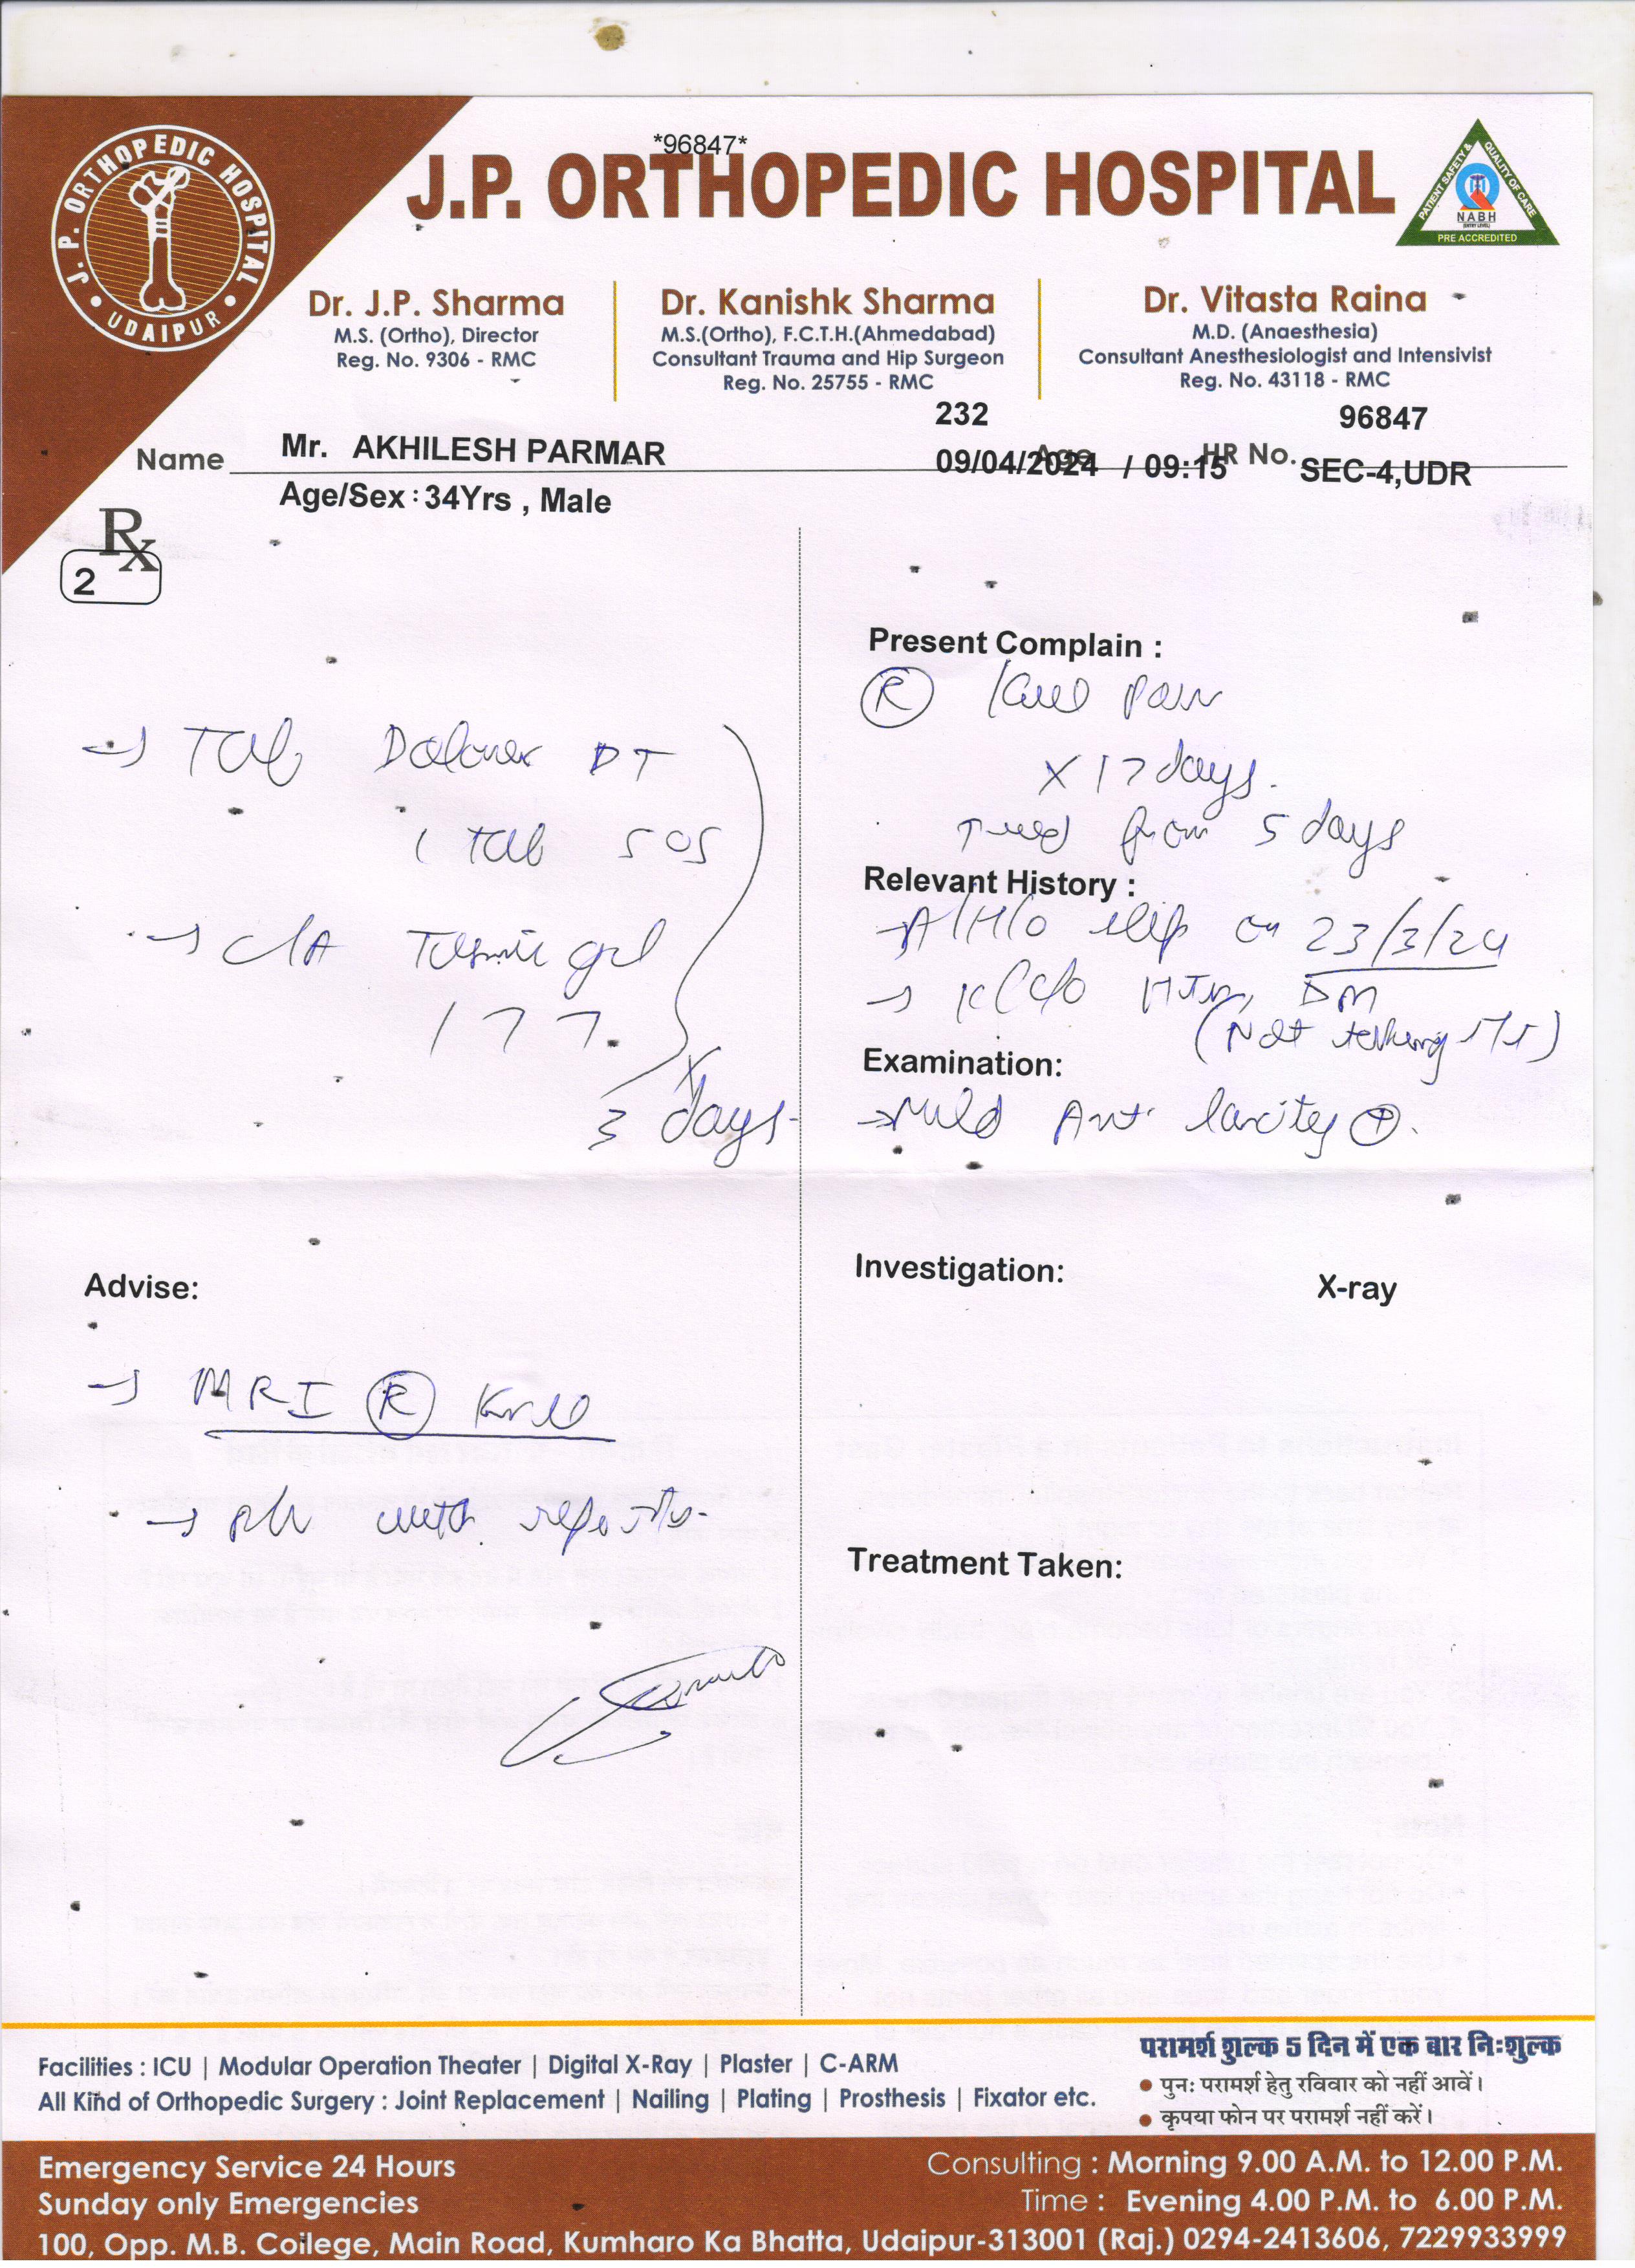 *96847*
J.P. ORTHOPEDIC HOSPITAL
J. P. ORTHOPEDIC HOSPITAL
• UDAIPUR •
PATIENT SAFETY & QUALITY OF CARE
NABH
(ENTRY LEVEL)
PRE ACCREDITED
Dr. J.P. Sharma
M.S. (Ortho), Director
Reg. No. 9306 - RMC
Dr. Kanishk Sharma
M.S.(Ortho), F.C.T.H.(Ahmedabad)
Consultant Trauma and Hip Surgeon
Reg. No. 25755 - RMC
Dr. Vitasta Raina
M.D. (Anaesthesia)
Consultant Anesthesiologist and Intensivist
Reg. No. 43118 - RMC
232
96847
Name Mr. AKHILESH PARMAR
Age
09/04/2024 / 09:15
HR No. SEC-4,UDR
Age/Sex : 34Yrs , Male
Rx
2
→ Tab DT
1 Tab SOS
→ C/A gel
3 days
Advise:
→ MRI (R) Knee
→ with reports
Present Complain :
(R) Knee pain
X 17 days.
from 5 days
Relevant History :
→ A/H/O slip on 23/3/24
→ K/C/O HTN, DM
(Not taking t/t)
Examination:
→ Mild Ant. laxity ⊕.
Investigation:
X-ray
Treatment Taken:
Facilities : ICU | Modular Operation Theater | Digital X-Ray | Plaster | C-ARM
All Kind of Orthopedic Surgery : Joint Replacement | Nailing | Plating | Prosthesis | Fixator etc.
परामर्श शुल्क 5 दिन में एक बार निःशुल्क
• पुनः परामर्श हेतु रविवार को नहीं आवें।
• कृपया फोन पर परामर्श नहीं करें।
Emergency Service 24 Hours
Sunday only Emergencies
Consulting : Morning 9.00 A.M. to 12.00 P.M.
Time : Evening 4.00 P.M. to 6.00 P.M.
100, Opp. M.B. College, Main Road, Kumharo Ka Bhatta, Udaipur-313001 (Raj.) 0294-2413606, 7229933999